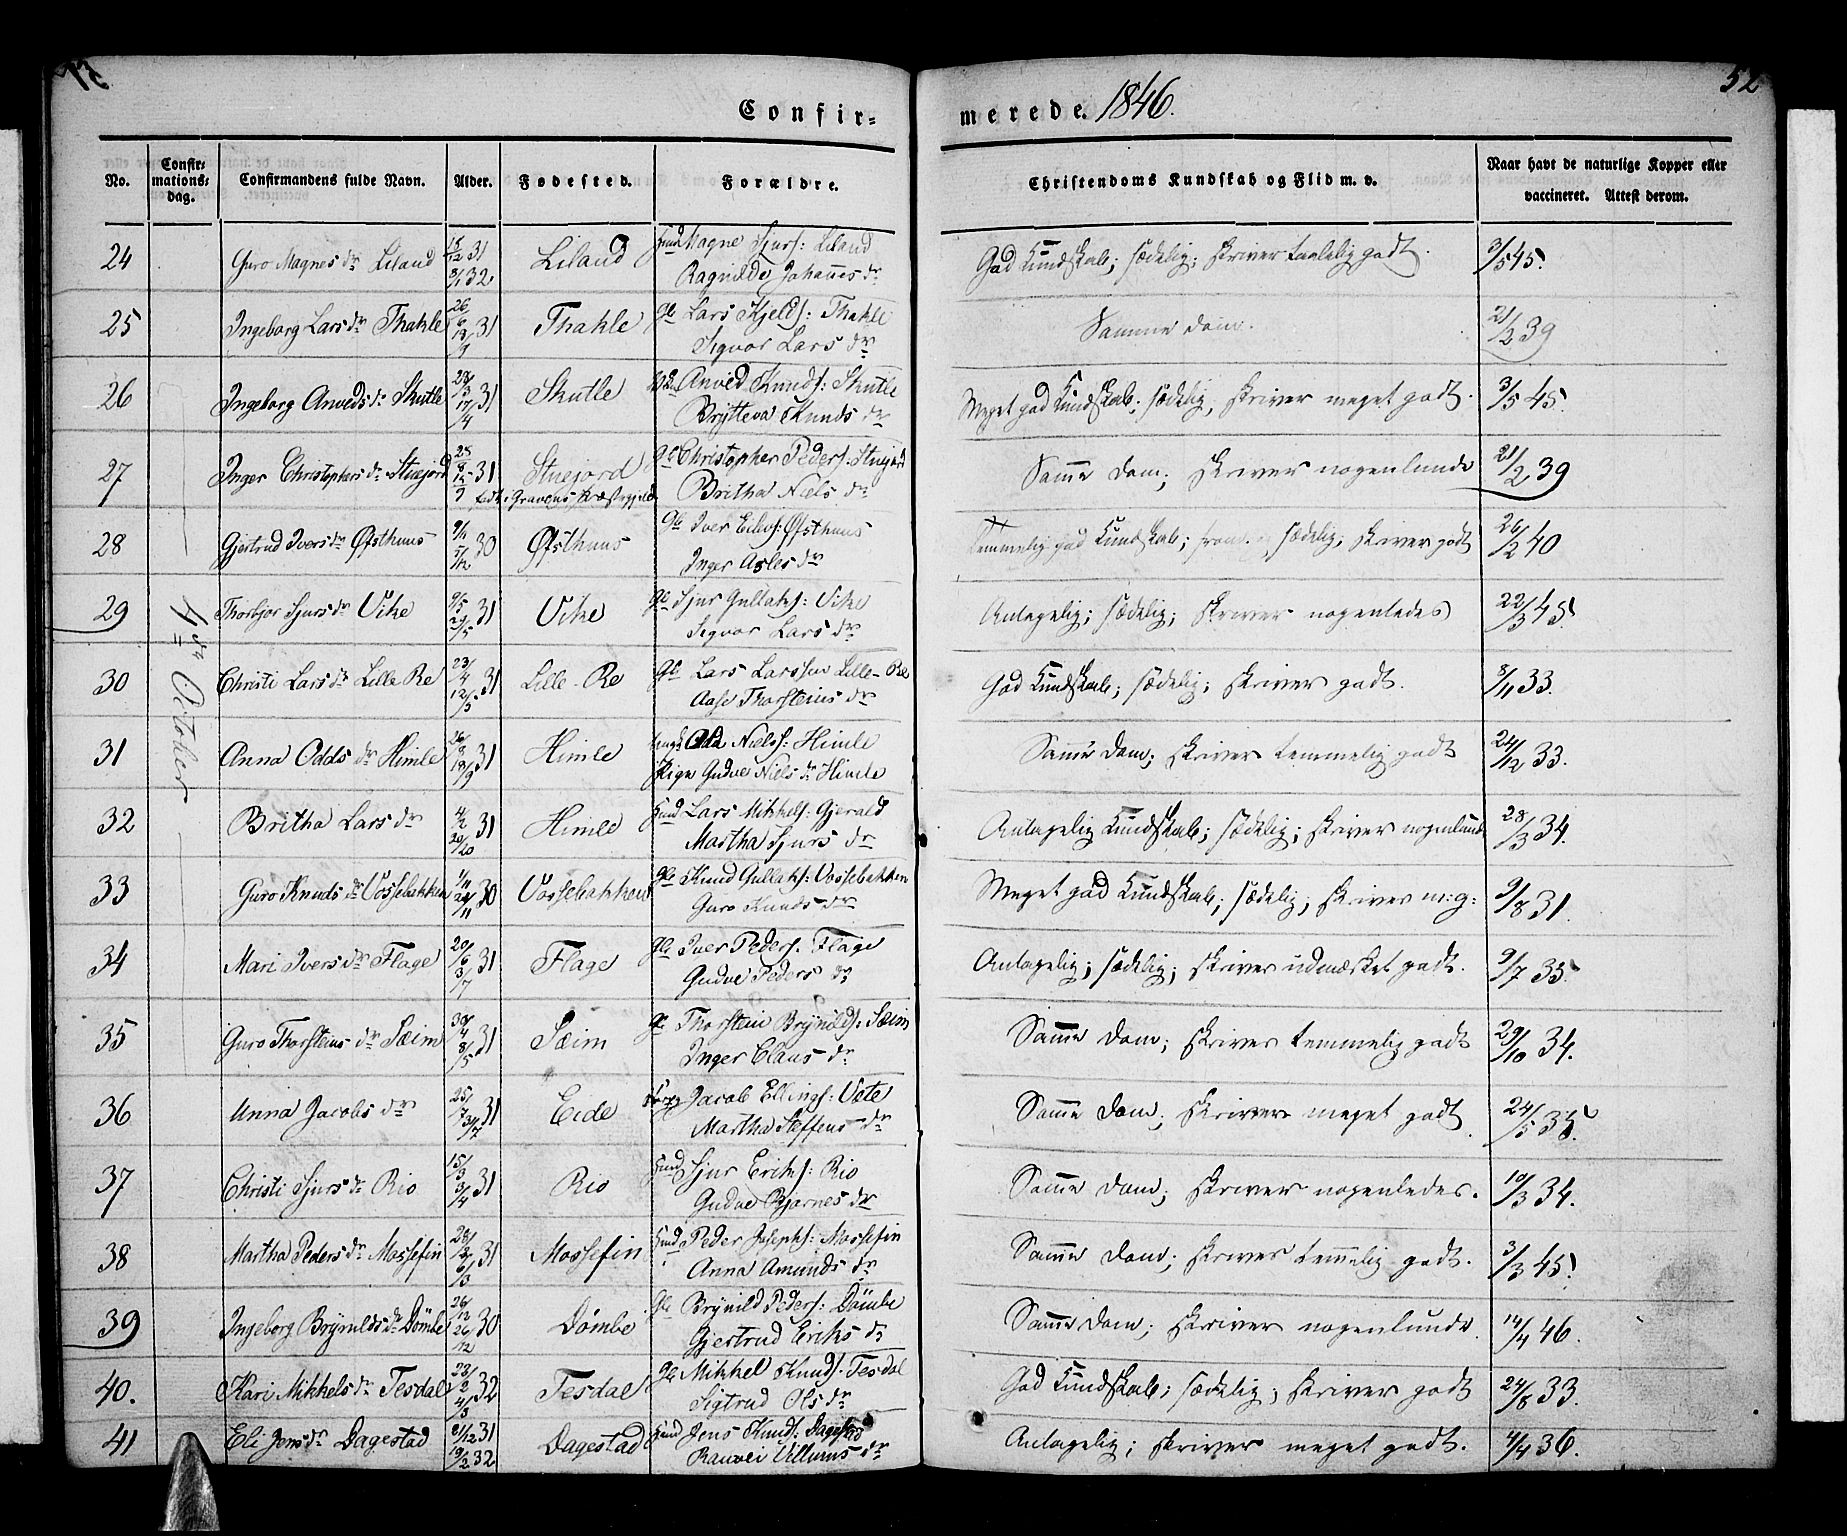 52
Confir-
merede. 1846.
No.
Confir-
mations-
dag.
Confirmandens fulde Navn.
Alder.
Fødested.
Forældre.
Christendoms Kundskab og Flid m. v.
Naar havt de naturlige Kopper eller
vaccineret. Attest derom.
4de October
24 Guro Magnes dr Liland 18/12 31 8/1 32 Liland Huusmd Magne Sjurs: Liland
Ragnilde Johannes dr
God Kundskab; sædelig; skriver taalelig godt. 3/5 45.
25 Ingeborg Lars dr Thakle 26/6 31 Thakle Lars Kjelds: Thakle
Sigvor Lars dr
Samme Dom. 21/2 39
26 Ingeborg Anveds dr Skutle 31 17/4 Skutle Anved Knuds: Skutle
Brytteva Knuds dr
Meget god Kundskab; sædelig, skriver meget godt. 3/5 45.
27 Inger Christophers dr Stuejord 31 Stuejord Christopher Peders: Stuejord
født i Gravens Præstegjeld Britha Niels dr
Samme Dom; skriver nogenlunde 21/2 39
28 Gjertrud Ivers dr Øfsthuus 9/11 5/12 30 Øfsthuus Iver Eilevs: Øfsthuus
Inger Asles dr
Temmelig god Kundskab; sædelig; skriver godt 26/2 40
29 Thorbjor Sjurs dr Vike 9/5 31 Vike Sjur Gullaks: Vike
Sigvor Lars dr
Antagelig; sædelig; skriver nogenledes 22/3 45.
30 Christi Lars dr Lille Re 23/4 12/5 31 Lille-Re Lars Larssen Lille-Re
Aase Thorsteins dr
God Kundskab; sædelig; skriver godt. 8/11 33.
31 Anna Odds dr Himle 26/8 18/9 31 Himle Odd Niels: Himle
Pige Gudve Niels dr Himle
Samme Dom; skriver temmelig godt 24/12 33.
32 Britha Lars dr 31 Himle Lars Mikkels: Gjerald
Martha Sjurs dr
Antagelig Kundskab; sædelig; skriver nogenlunde 28/3 34.
33 Guro Knuds dr Vossebakken 1/11 24/11 30 Vossebakken Knud Gullaks: Vossebakken
Guro Knuds dr
Meget god Kundskab; sædelig; skriver m: g: 9/8 31.
34 Mari Ivers dr Flage 20/6 3/7 31 Flage Iver Peders. Flage
Gudve Peders dr
Antagelig; sædelig; skriver udmærket godt. 9/7 35
35 Guro Thorsteins dr Sæim 30/4 8/5 31 Sæim Thorstein Brynilds: Sæim
Inger Claus dr
Samme Dom; skriver temmelig godt 29/10 34.
36 Anna Jacobs dr 25/7 31/7 31 Eide Jacob Ellings: Vete
Martha Steffens dr
Samme Dom; skriver meget godt 24/5 35.
37 Christi Sjurs dr Rio 15/3 3/4 31 Rio Sjur Eriks: Rio
Gudve Bjarnes dr
Samme Dom; skriver nogenledes. 10/3 34.
38 Martha Peders dr Mossefin 28/2 6/3 31 Mossefin Peder Josephs: Mossefin
Anna Amunds dr
Samme Dom; skriver temmelig godt. 3/3 45.
39 Ingeborg Brynilds dr Dömbe 26/12 30 Dömbe Brynild Peders: Dömbe
Gjertrud Eriks dr
Samme Dom; skriver nogenlunde. 14/4 46.
40. Kari Mikkels dr Tesdal 23/2 4/3 32 Tesdal Mikkel Knuds. Tesdal
Sigtrud Ols dr
God Kundskab; sædelig; skriver godt 24/8 33.
41 Eli Jens dr Dagestad 31 19/2 32 Dagestad Jens Knuds: Dagestad
Ranvei Villums dr
Antagelig; skriver meget godt. 4/4 36.